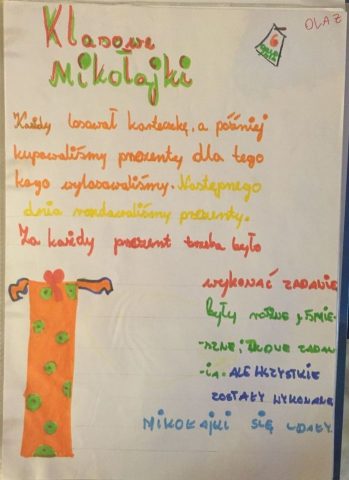 OLA Z
Klasowe
Mikołajki
6
Każdy losował karteczkę, a później
kupowaliśmy prezenty dla tego
kogo wylosowaliśmy. Następnego
dnia rozdawaliśmy prezenty.
Za każdy prezent trzeba było
wykonać zadanie
były różne, śmie-
-szne,
zadan
-ia. ALE WSZYSTKIE
ZOSTAŁY WYKONANE
MIKOŁAJKI SIĘ UDAŁY